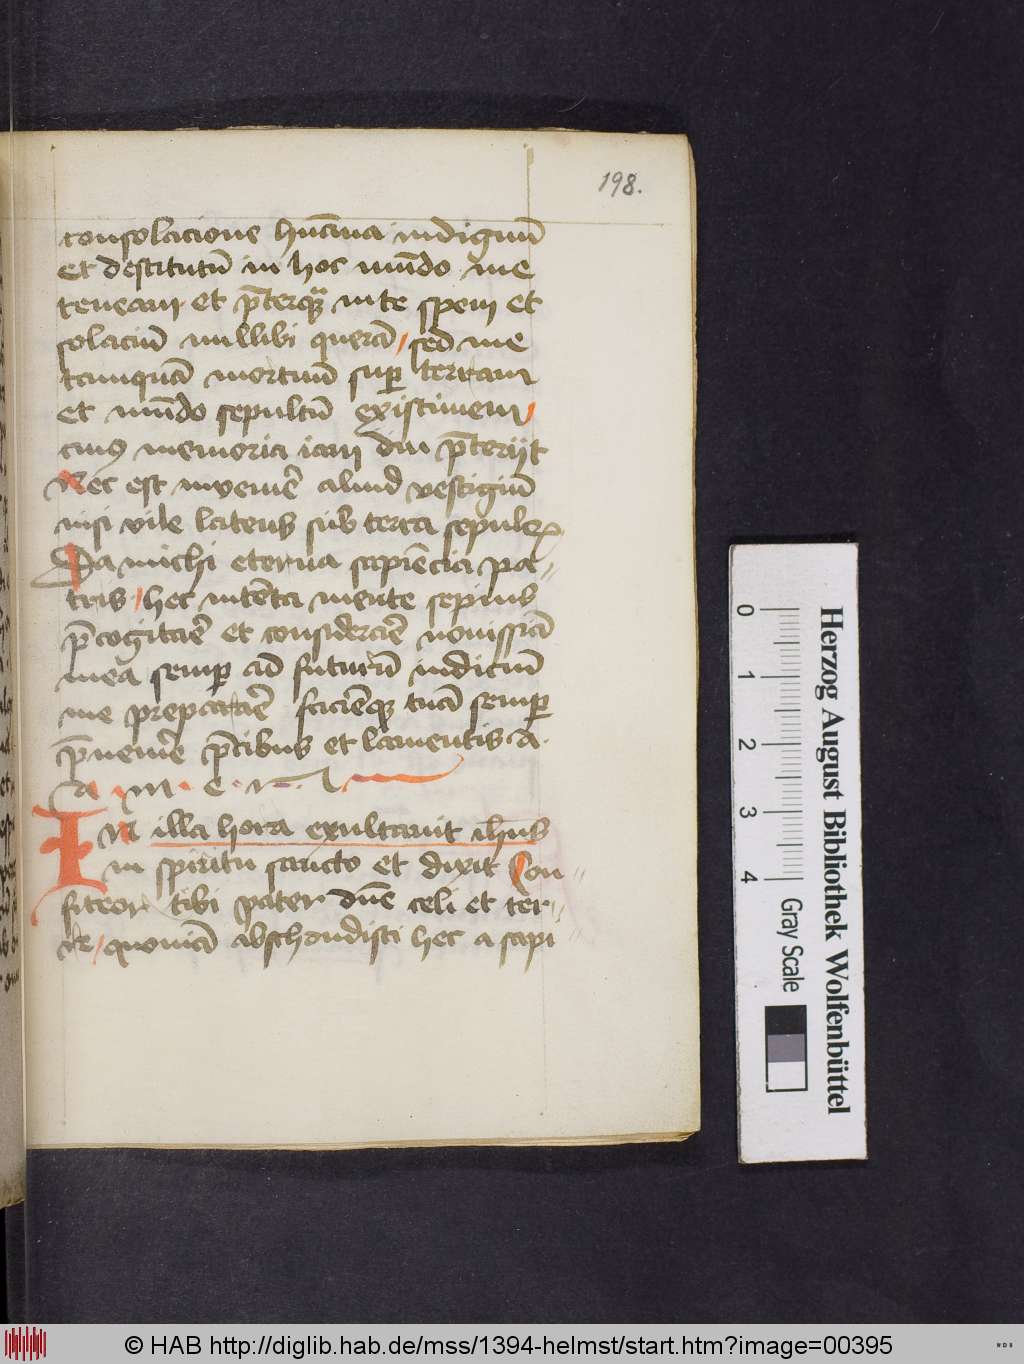 198.
consolacione hūana indignū
et destitutū in hos mūdo me
teneam et p̄terqȝ in te spem et
solaciū nullibi querā sed me
tamquā mortuū suꝑ terram
et mūdo sepultū existimem
cuiꝰ memoria iam diu p̄teriit
Nec est inveniē aliud vestigiū
nisi vile latens sub terra sepulcꝝ
Da michi eterna sapiēcia pa-
tris hec intēta mente sepius
p̄cogitaē et consideraē novissīa
mea semꝑ ad futurū iudiciū
me preparaē faciēqȝ tuā semꝑ
p̄veniē p̄cibus et lamentis a.
a m e n
IN illa hora exultavit ih̄us
in spiritu sancto et dixit Con-
fiteor tibi pater dn̄e celi et ter-
re quoniā abschondisti hec a sapi
Herzog August Bibliothek Wolfenbüttel
0 1 2 3 4 Gray Scale
© HAB http://diglib.hab.de/mss/1394-helmst/start.htm?image=00395